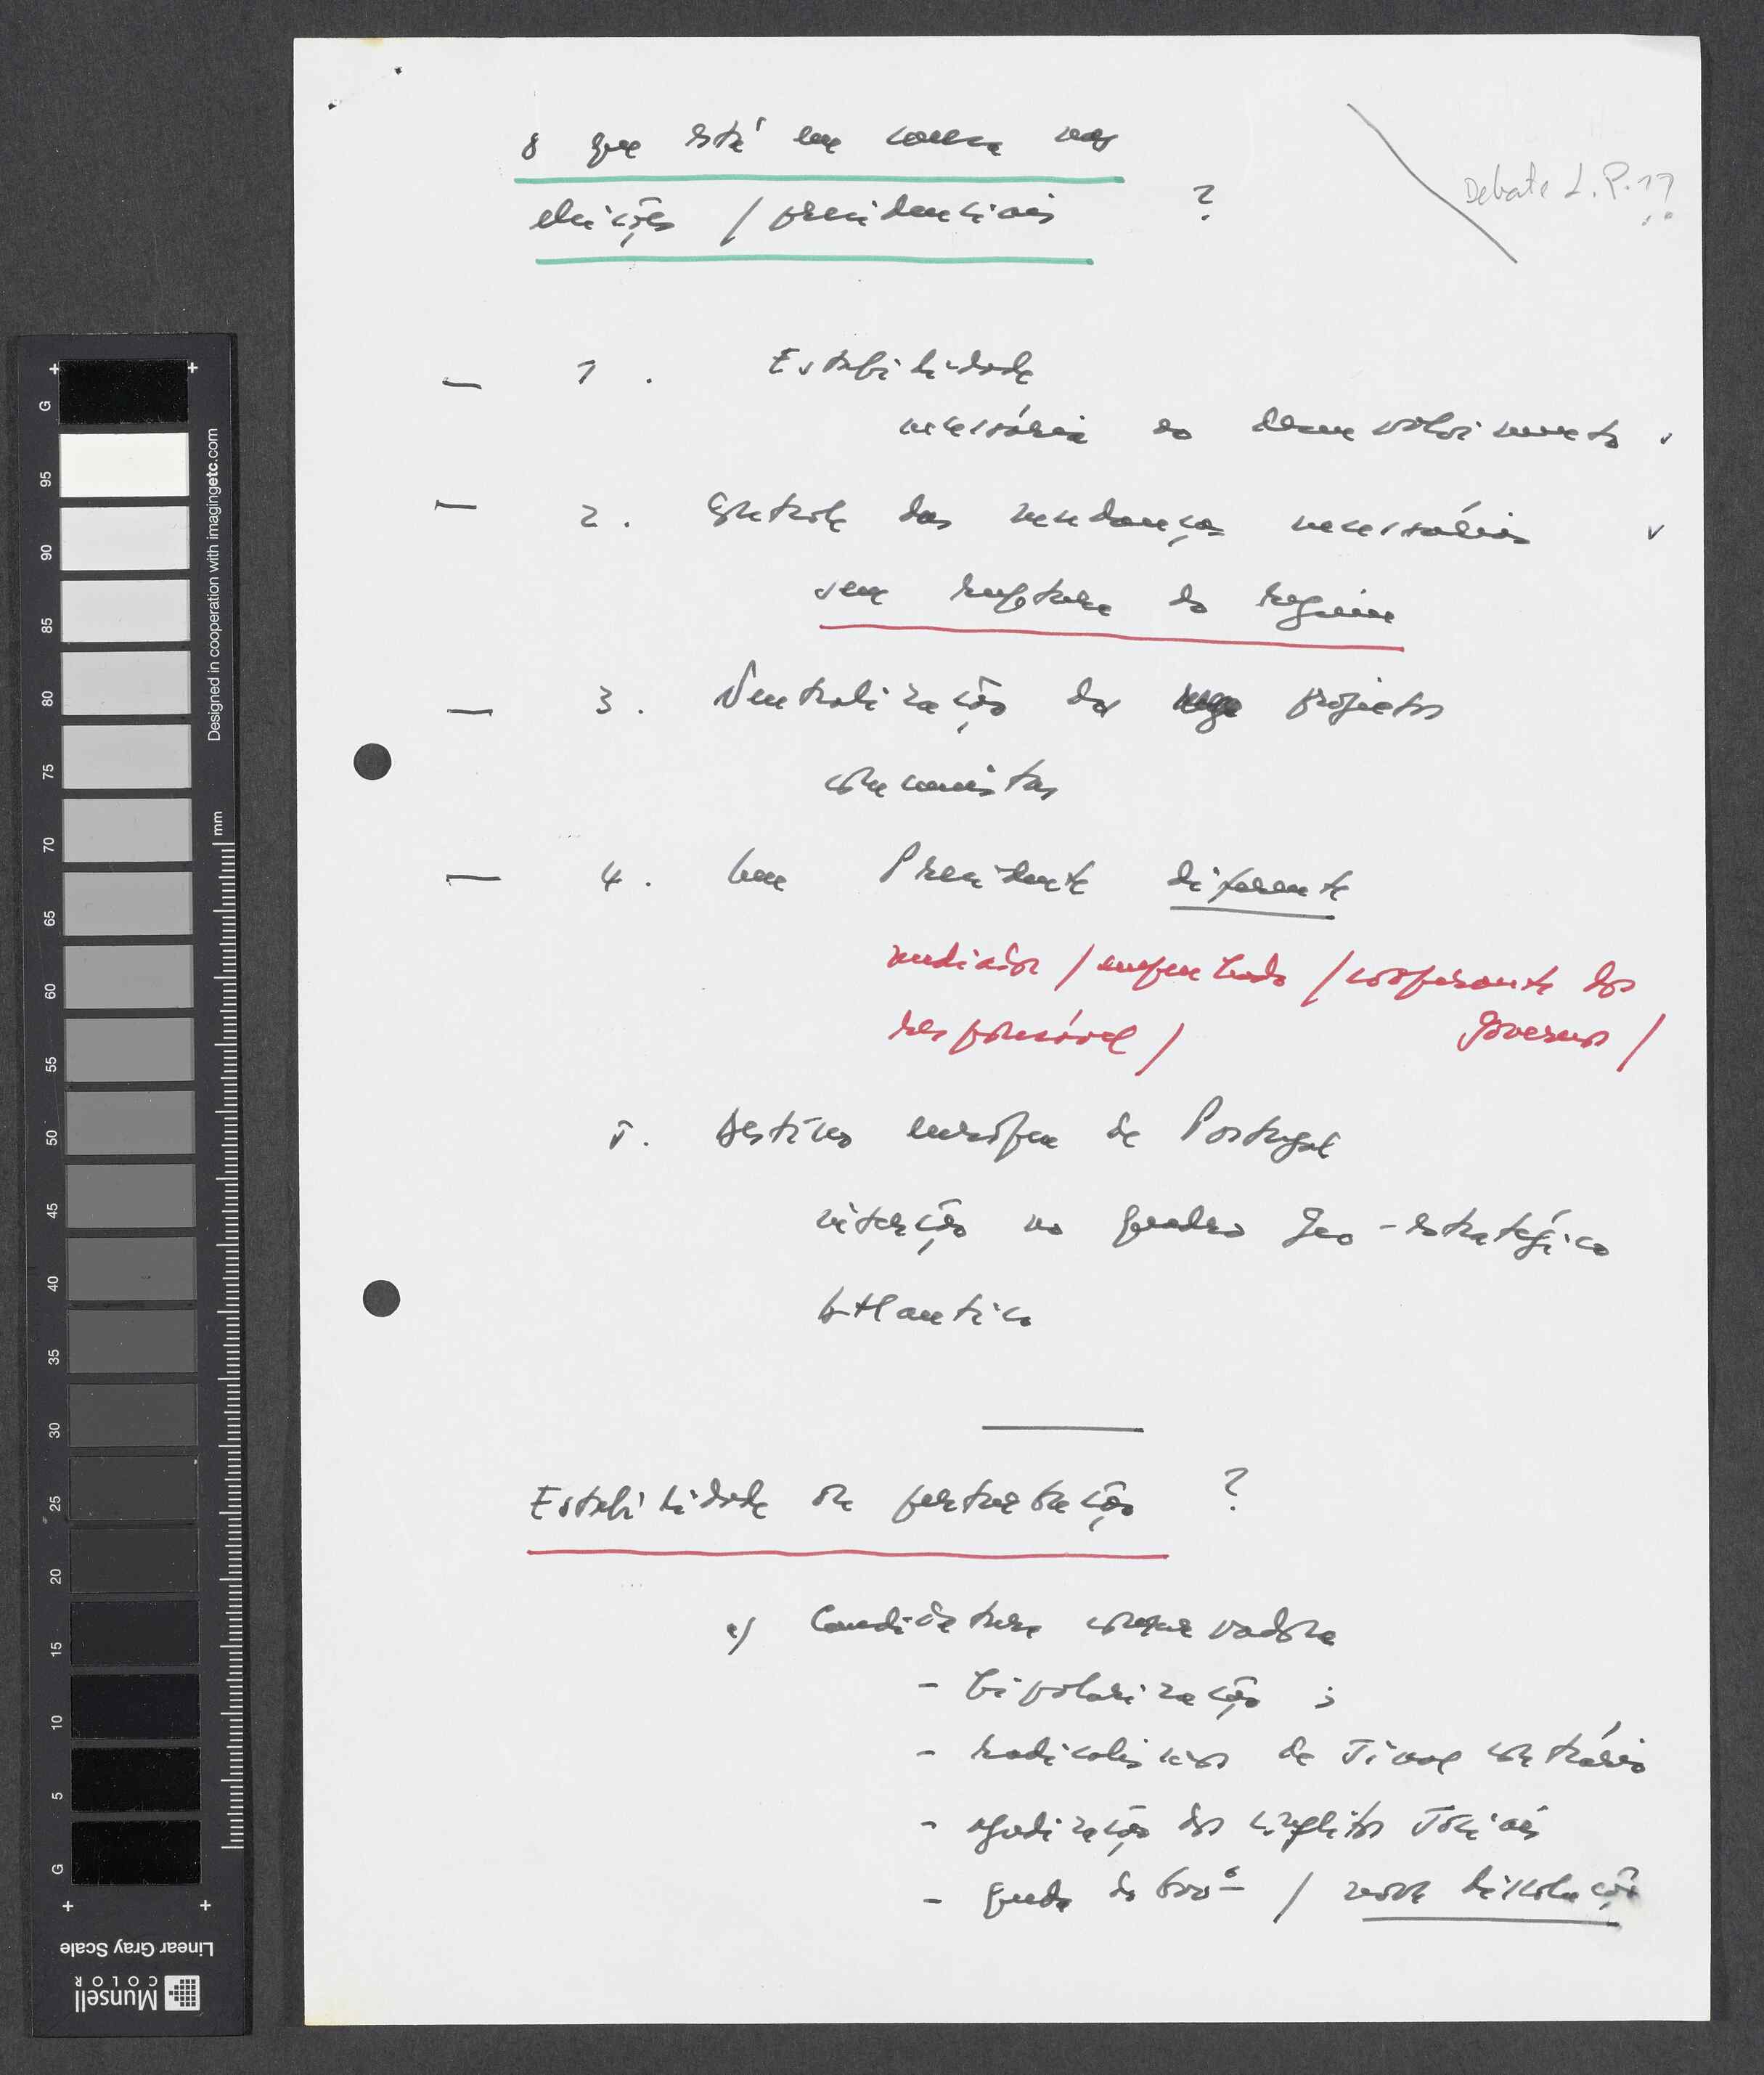 Debate L.P.??
O que está em causa nas
eleições / presidenciais ?
— 1. Estabilidade
necessária ao desenvolvimento
— 2. Controle das mudanças necessárias
sem ruptura do regime
— 3. Neutralização dos projectos
comunistas
— 4. Um Presidente diferente
mediador / empenhado / cooperante dos
responsável / governos /
5. Destino europeu de Portugal
inserção no quadro geo-estratégico
Atlantico
Estabilidade ou perturbação ?
a) Candidatura conservadora
- bipolarização ;
- radicalismos de sinal contrário
- agudização dos conflitos sociais
- queda do Govº / nova dissolução
G
95
90
85
80
75
70
65
60
55
50
45
40
35
30
25
20
15
10
5
G
mm
Designed in cooperation with imagingetc.com
Linear Gray Scale
Munsell
COLOR